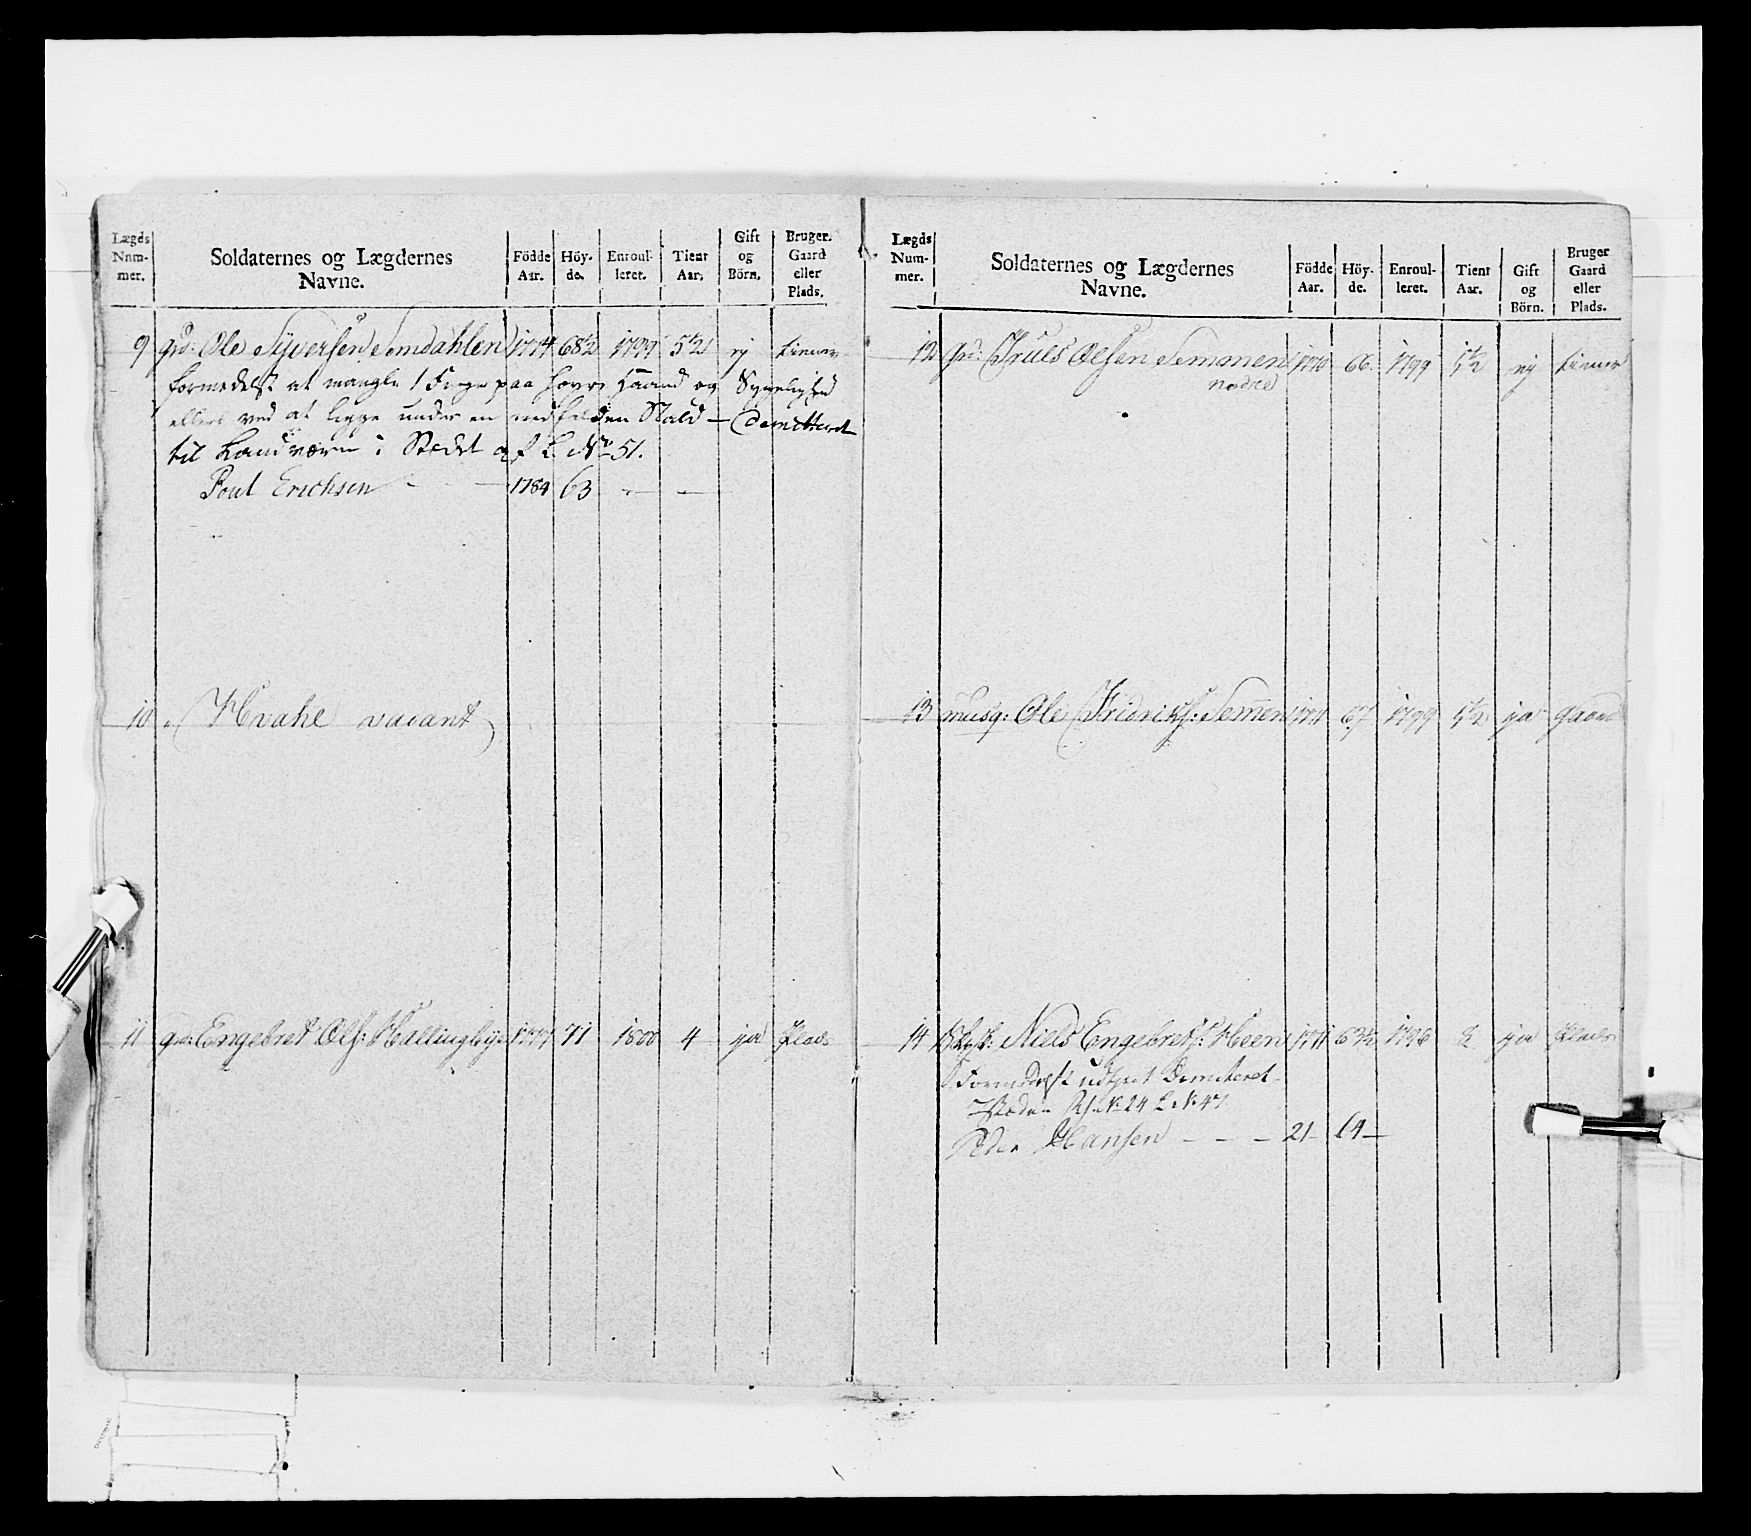 Lægds Num- mer. Soldaternes og Lægdernes Navne. Födde Aar. Höy- de. Enroul- leret. Tient Aar. Gift og Börn. Bruger. Gaard eller Plads.
9 grd: Ole Syversen Semdahlen 1774 68½ 1799 5½ ej tienner
formedelst at mangle 1 Finger paa høyre Haand og Sygelighed
ellers ved at ligge under en nedfalden Stald – Demitteret
til Landværn i Stedet af L. No 51.
Poul Erichsen 1784 63
10 Hvahe vacant
11 grd: Engebret Ols: Hallingbye 1777 71 1800 4 ja Plads
Lægds Num- mer. Soldaternes og Lægdernes Navne. Födde Aar. Höy- de. Enroul- leret. Tient Aar. Gift og Börn. Bruger Gaard eller Plads.
12 grd: Truls Olsen Semmen 1770 66. 1799 5½ ej tienner
nordre
13 musq: Ole Fridriks: Semen 1771 67 1799 5½ ja gaard
14 Niels Engebrets: Heen 1771 63½ 1796 8 ja Plads
Formedelst udtient Demiteret
No 24 L No 47
Peder Hansen – – – 21 – 64 –